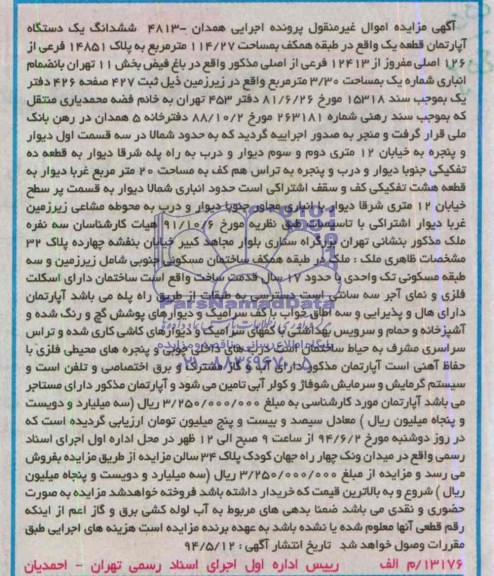 آگهی مزایده اموال غیرمنقول پرونده اجرایی همدان -۴۸۱۳ ششدانگ یک دستگاه
آپارتمان قطعه یک واقع در طبقه همکف بمساحت ۱۱۴/۲۷ مترمربع به پلاک ۱۴۸۵۱ فرعی از
۱۲۶ اصلی مفروز از ۱۲۴۱۳ فرعی از اصلی مذکور واقع در باغ فیض بخش ۱۱ تهران بانضمام
انباری شماره یک بمساحت ۳/۳۰ مترمربع واقع در زیرزمین ذیل ثبت ۴۲۷ صفحه ۴۲۶ دفتر
یک بموجب سند ۱۵۳۱۸ مورخ ۸۱/۶/۲۶ دفتر ۴۵۳ تهران به خانم فضه محمدیاری منتقل
که بموجب سند رهنی شماره ۲۶۳۱۸۱ مورخ ۸۸/۱۰/۲ دفترخانه ۵ همدان در رهن بانک
ملی قرار گرفت و منجر به صدور اجراییه گردید که به حدود شمالا در سه قسمت اول دیوار
و پنجره به خیابان ۱۲ متری دوم و سوم دیوار و درب به راه پله شرقا دیوار به قطعه ده
تفکیکی جنوبا دیوار و درب و پنجره به تراس هم کف به مساحت ۲۰ متر مربع غربا دیوار به
قطعه هشت تفکیکی کف و سقف اشتراکی است حدود انباری شمالا دیوار به قسمت پر سطح
خیابان ۱۲ متری شرقا دیوار با انباری مجاور جنوبا دیوار و درب به محوطه مشاعی زیرزمین
غربا دیوار اشتراکی با تاسیسات طبق نظریه مورخ ۹۱/۱۰/۶ هیات کارشناسان سه نفره
ملک مذکور بنشانی تهران بزرگراه ستاری بلوار مجاهد کبیر خیابان بنفشه چهارده پلاک ۳۲
مشخصات ظاهری ملک : ملک در طبقه همکف ساختمان مسکونی جنوبی شامل زیرزمین و سه
طبقه مسکونی تک واحدی با حدود ۱۷ سال قدمت ساخت واقع است ساختمان دارای اسکلت
فلزی و نمای آجر سه سانتی است دسترسی به طبقات از طریق راه پله می باشد آپارتمان
دارای هال و پذیرایی و سه اطاق خواب با کف سرامیک و دیوارهای پوشش گچ و رنگ شده و
آشپزخانه و حمام و سرویس بهداشتی با کفهای سرامیک و دیوارهای کاشی کاری شده و تراس
سراسری مشرف به حیاط ساختمان است درب های داخلی چوبی و پنجره های محیطی فلزی با
حفاظ آهنی است آپارتمان مذکور دارای آب و گاز مشترک و برق اختصاصی و تلفن است و
سیستم گرمایش و سرمایش شوفاژ و کولر آبی تامین می شود و آپارتمان مذکور دارای مستاجر
می باشد آپارتمان مورد کارشناسی به مبلغ ۳/۲۵۰/۰۰۰/۰۰۰ ریال (سه میلیارد و دویست
و پنجاه میلیون ریال ) معادل سیصد و بیست و پنج میلیون تومان ارزیابی گردیده است که
در روز دوشنبه مورخ ۹۴/۶/۲ از ساعت ۹ صبح الی ۱۲ ظهر در محل اداره اول اجرای اسناد
رسمی واقع در میدان ونک چهار راه جهان کودک پلاک ۳۴ سالن مزایده از طریق مزایده بفروش
می رسد و مزایده از مبلغ ۳/۲۵۰/۰۰۰/۰۰۰ ریال (سه میلیارد و دویست و پنجاه میلیون
ریال ) شروع و به بالاترین قیمت که خریدار داشته باشد فروخته خواهدشد مزایده به صورت
حضوری و نقدی می باشد ضمنا بدهی های مربوط به آب لوله کشی برق و گاز اعم از اینکه
رقم قطعی آنها معلوم شده یا نشده باشد به عهده برنده مزایده است هزینه های اجرایی طبق
مقررات وصول خواهد شد تاریخ انتشار آگهی : ۹۴/۵/۱۲
۱۳۱۷۶/م الف رییس اداره اول اجرای اسناد رسمی تهران - احمدیان
ParsNamadData